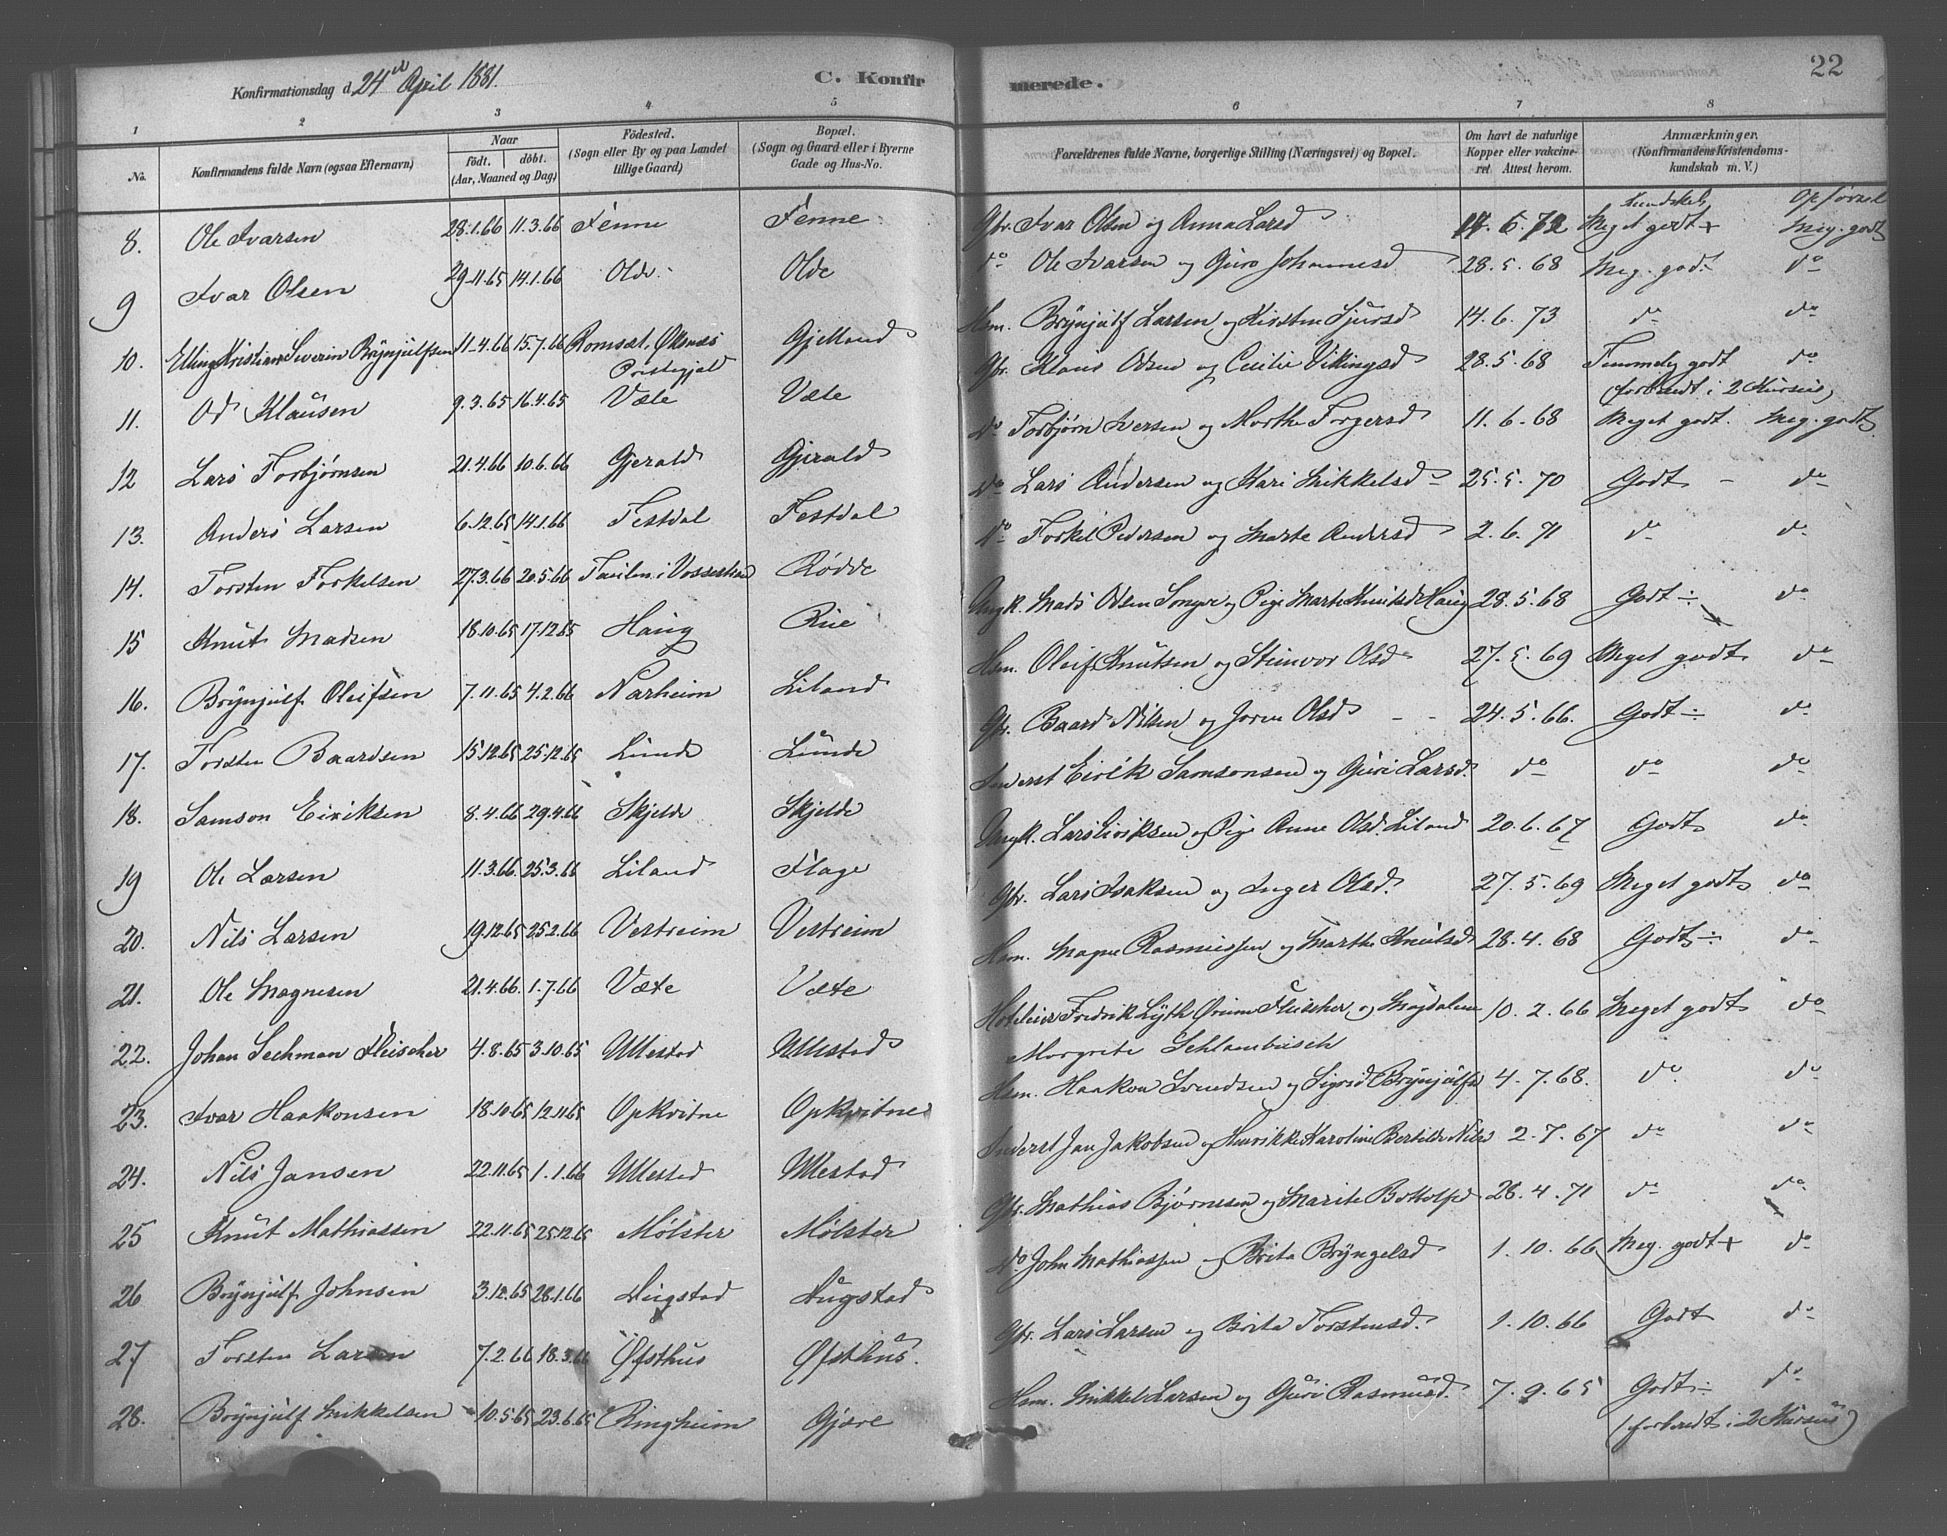 Konfirmationsdag d. 24de April 1881.
C. Konfirmerede.
22
1 2 3 4 5 6 7 8
No.
Konfirmandens fulde Navn (ogsaa Efternavn)
Naar
födt. döbt.
(Aar, Maaned og Dag)
Födested.
(Sogn eller By og paa Landet tillige Gaard)
Bopæl.
(Sogn og Gaard eller i Byerne Gade og Hus-No.
Forældrenes fulde Navne, borgerlige Stilling (Næringsvei) og Bopæl.
Om havt de naturlige Kopper eller vaccineret Attest herom.
Anmærkninger.
(Konfirmandens Kristendomskundskab m. V.)
Kundskab Opførsel
8. Ole Ivarsen 28.1.66 11.3.66 Fenne Fenne Gbr. Ivar Olsen og Anna Larsd 14.6.72 Meget godt + Meg. godt
9 Ivar Olsen 29.11.65 14.1.66 Olde Olde do Ole Ivarsen og Guro Johannesd 28.5.68 Meg. godt do
10. Elling Kristian Severin Brynjulfsen 11.4.66 15.7.66 Romsdal. Øksnæs Præstegjæld Gjelland Hsm. Brynjulf Larsen og Kirsten Sjursd 14.6.73 do do
11. Od Klausen 9.3.65 16.4.65 Væte Væte Gbr. Klaus Odsen og Cecilie Vikingsd 28.5.68 Temmelig godt do
(forberedt i 2 Kursus)
12 Lars Torbjørnsen 21.4.66 10.6.66 Gjerald Gjerald do Torbjørn Iversen og Marthe Torgersd 11.6.68 Meget godt. Meg. godt
13. Anders Larsen 6.12.65 14.1.66 Festdal Festdal do Lars Andersen og Kari Mikkelsd 25.5.70 Godt do
14. Torsten Torkelsen 27.3.66 20.5.66 i Vossestrand Rødde do Torkel Pedersen og Marte Andersd 2.6.71 do do
15 Knut Madsen 18.10.65 17.12.65 Haug Rue Ungk. Mads Odsen og Pige Marte Knutsd Haug 28.5.68 Godt ÷ do
16. Brynjulf Oleifsen 7.11.65 4.2.66 Narheim Liland Hsm. Oleif Knutsen og Steinvor Olsd 27.5.69 Meget godt do
17. Torsten Baardsen 15.12.65 25.12.65 Lunde Lunde Gbr. Baard Nilsen og Joren Olsd 24.5.66. Godt ÷ do
18. Samson Eiriksen 8.4.66 29.4.66 Skjelde Skjelde Inderst Eirik Samsonsen og Guri Larsd. do do do
19 Ole Larsen 11.3.66. 25.3.66 Liland Flage Ungk. Lars Eiriksen og Pige Anne Olsd. Liland 20.6.67 Godt do
20. Nils Larsen 19.12.65 25.2.66 Vestreim Vestreim Gbr. Lars Isaksen og Inger Olsd. 27.5.69 Meget godt do
21. Ole Magnesen 21.4.66. 1.7.66 Væte Væte Hsm. Magne Rasmussen og Marthe Knutsd 28.4.68 Godt ÷ do
22. Johan Sechman Fleischer 4.8.65 3.10.65 Ullestad Ullestad Hoteleier Fredrik Lyth Ørum Fleischer og Magdalene 10.2.66 Meget godt do
Margrete Schlambusch
23. Ivar Haakonsen 18.10.65 12.11.65 Opkvitne Opkvitne Hsm. Haakon Svendsen og Sigrid Brynjulfsd 4.7.68. do do
24. Nils Jansen 22.11.65 1.1.66 Ullestad Ullestad Inderst Jan Jakobsen og Henrikke Karoline Bertilde Nilsd 2.7.67 do do
25 Knut Mathiassen 22.11.65 25.12.65 Mølster Mølster Gbr. Mathias Bjørnesen og Marite Botolfsd 28.4.71 do do
26 Brynjulf Johnsen 3.12.65 28.1.66 Hugstad Hugstad do John Mathiassen og Brita Bryngelsd 1.10.66 Meg. godt + do
27 Torsten Larsen 7.2.66 18.3.66 Øfsthus Øfsthus. Gbr. Lars Larsen og Brita Torstensd. 1.10.66 Godt do
28. Brynjulf Mikkelsen 10.5.65 23.6.65 Ringheim Gjøre Hsm. Mikkel Larsen og Guri Rasmusd. 7.9.65 Godt ÷ do
(forberedt i 2 Kursus)